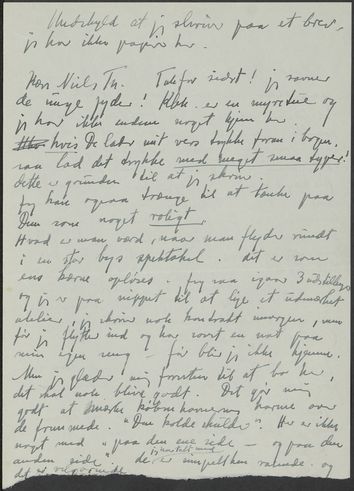 Undskyld at jeg skriver paa et brev,
jeg har ikke papir her.
Kære Niels Th. Tak for sidst! jeg savner
de unge jyder! Kbh. er en myretue og
jeg har ikke endnu noget hjem her.
hvis De lader mit vers trykke form i bogen,
saa lad det trykke med meget smaa typer!
dette er grunden til at jeg skrev.
Jeg kan ogsaa trænge til at tænke paa
Dem som noget roligt.
Hvad er man værd, naar man flyder rundt
i en stor bys spektakel. det er som
ens kerne opløses. Jeg saa igaar 3 udstillinger
og jeg er paa nippet til at leje et udmærket
atelier, jeg skriver nok kontrakt imorgen, men
før jeg flytter ind og har sovet en nat paa
min egen seng — før bliver jeg ikke hjemme.
Men jeg glæder mig forresten til at bo her,
det skal nok blive godt. Det gør mig
godt at mærke københavnernes harme over
de fremmede. "Den kolde skulder". Her er ikke
noget med "paa den ene side — og paa den
anden side" de er simpelthen rasende. og